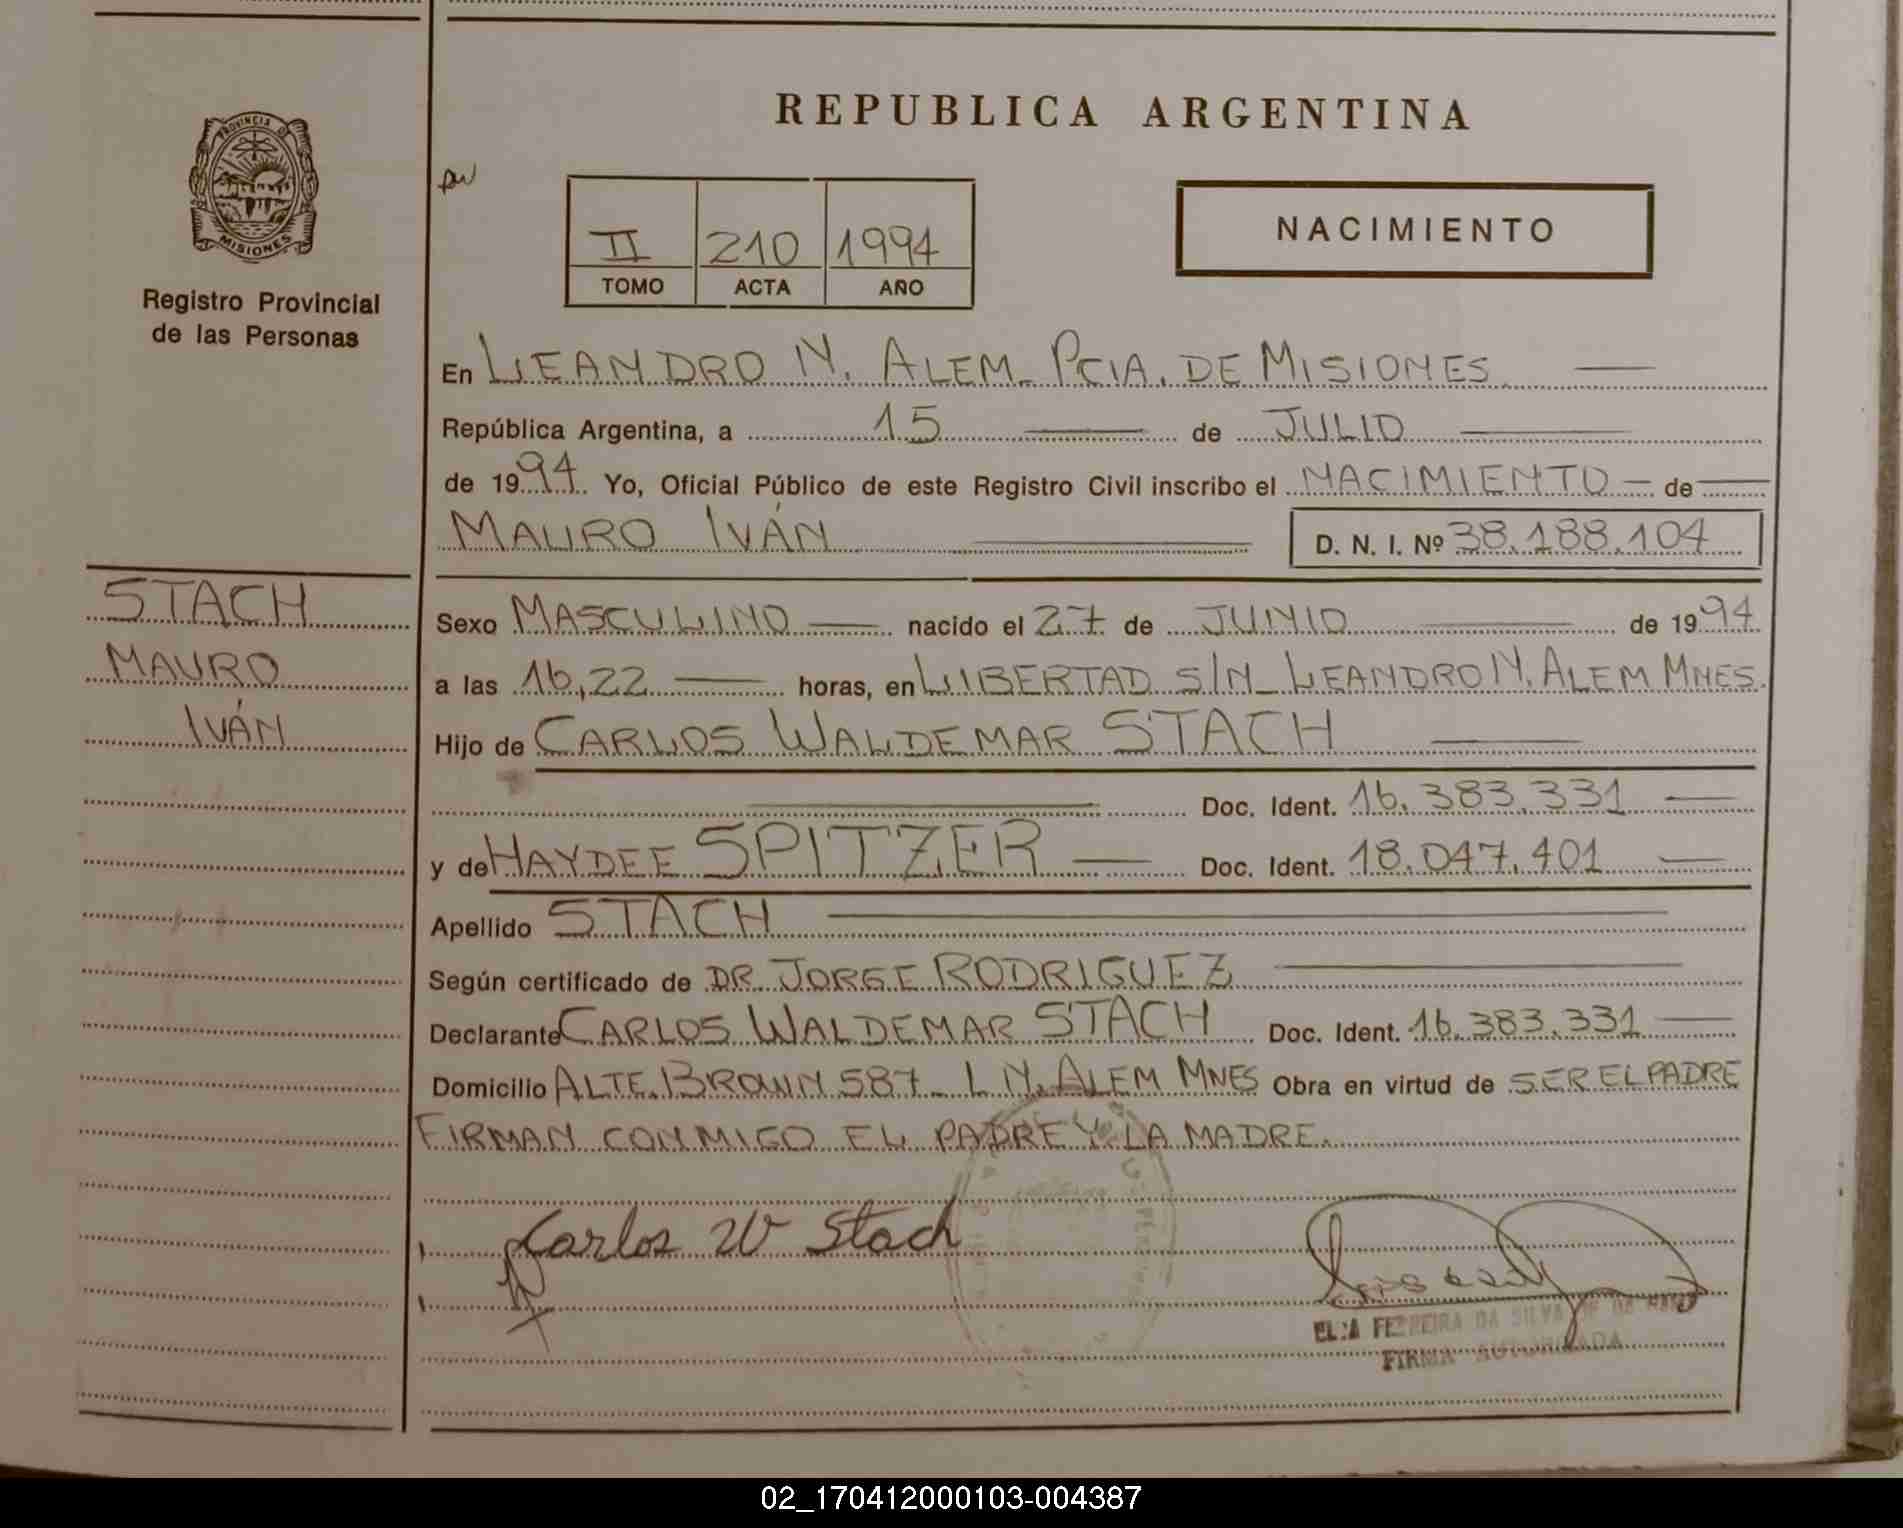 REPUBLICA ARGENTINA
PROVINCIA DE
MISIONES
Registro Provincial
de las Personas
II 210 1994
TOMO ACTA AÑO
NACIMIENTO
En LEANDRO N. ALEM_ PCIA. DE MISIONES
República Argentina, a 15 de JULIO
de 1994. Yo, Oficial Público de este Registro Civil inscribo el NACIMIENTO de
MAURO IVÁN D. N. I. Nº 38.188.104
STACH
MAURO
IVÁN
Sexo MASCULINO nacido el 27 de JUNIO de 1994
a las 16,22 horas, en LIBERTAD S/N_ LEANDRO N. ALEM MNES.
Hijo de CARLOS WALDEMAR STACH
Doc. Ident. 16.383.331
y de HAYDEE SPITZER Doc. Ident. 18.047.401
Apellido STACH
Según certificado de DR. JORGE RODRIGUEZ
Declarante CARLOS WALDEMAR STACH Doc. Ident. 16.383.331
Domicilio ALTE. BROWN 587_ L.N. ALEM MNES Obra en virtud de SER EL PADRE
FIRMAN CONMIGO EL PADRE Y LA MADRE.
Carlos W Stach
ELSA FERREIRA DA SILVA DE
FIRMA AUTORIZADA
02_170412000103-004387